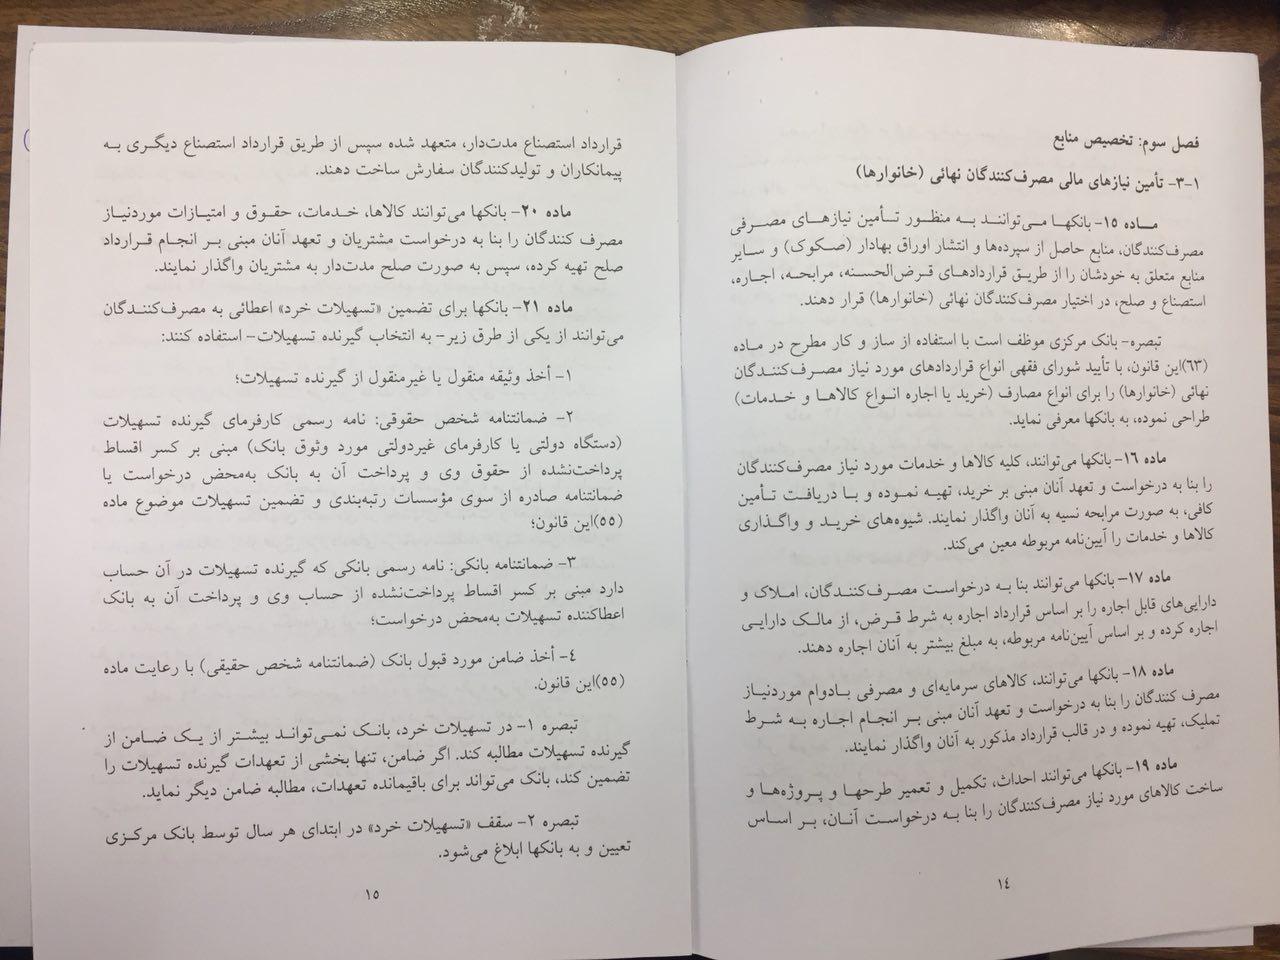 فصل سوم: تخصیص منابع
۳-۱- تأمین نیازهای مالی مصرف‌کنندگان نهائی (خانوارها)
مـاده ۱۵- بانکهـا مـی‌تواننـد بـه منظـور تـأمین نیازهـای مصـرفی
مصرف‌کنندگان، منابع حاصل از سپرده‌ها و انتشار اوراق بهادار (صکوک) و سایر
منابع متعلق به خودشان را از طریق قراردادهای قرض‌الحسنه، مرابحه، اجاره،
استصناع و صلح، در اختیار مصرف‌کنندگان نهائی (خانوارها) قرار دهند.
تبصره- بانک مرکزی موظف است با استفاده از ساز و کار مطرح در مـاده
(۶۳)این قانون، با تأیید شورای فقهی انواع قراردادهای مورد نیاز مصـرف‌کننـدگان
نهائی (خانوارها) را برای انواع مصارف (خرید یا اجاره انـواع کالاهـا و خـدمات)
طراحی نموده، به بانکها معرفی نماید.
ماده ۱۶- بانکها می‌توانند، کلیه کالاها و خدمات مورد نیاز مصرف‌کنندگان
را بنا به درخواست و تعهد آنان مبنی بر خرید، تهیه نموده و بـا دریافـت تـأمین
کافی، به صورت مرابحه نسیه به آنان واگذار نمایند. شیوه‌های خریـد و واگـذاری
کالاها و خدمات را آیین‌نامه مربوطه معین می‌کند.
ماده ۱۷- بانکها می‌توانند بنا بـه درخواسـت مصـرف‌کننـدگان، امـلاک و
دارایی‌های قابل اجاره را بر اساس قرارداد اجاره به شرط قرض، از مالـک دارایـی
اجاره کرده و بر اساس آیین‌نامه مربوطه، به مبلغ بیشتر به آنان اجاره دهند.
ماده ۱۸- بانکها می‌توانند، کالاهای سرمایه‌ای و مصرفی بـادوام موردنیـاز
مصرف کنندگان را بنا به درخواست و تعهد آنان مبنی بـر انجـام اجـاره بـه شـرط
تملیک، تهیه نموده و در قالب قرارداد مذکور به آنان واگذار نمایند.
ماده ۱۹- بانکها می‌توانند احداث، تکمیل و تعمیر طرحهـا و پـروژه‌هـا و
ساخت کالاهای مورد نیاز مصرف‌کنندگان را بنا به درخواسـت آنـان، بـر اسـاس
۱٤
قرارداد استصناع مدت‌دار، متعهد شده سپس از طریق قرارداد استصناع دیگری به
پیمانکاران و تولیدکنندگان سفارش ساخت دهند.
ماده ۲۰- بانکها می‌توانند کالاها، خدمات، حقوق و امتیازات موردنیـاز
مصرف کنندگان را بنا به درخواست مشتریان و تعهد آنان مبنی بـر انجـام قـرارداد
صلح تهیه کرده، سپس به صورت صلح مدت‌دار به مشتریان واگذار نمایند.
ماده ۲۱- بانکها برای تضمین «تسهیلات خرد» اعطائی به مصرف‌کننـدگان
می‌توانند از یکی از طرق زیر- به انتخاب گیرنده تسهیلات- استفاده کنند:
۱- أخذ وثیقه منقول یا غیرمنقول از گیرنده تسهیلات؛
۲- ضمانتنامه شخص حقوقی: نامه رسمی کارفرمای گیرنده تسهیلات
(دستگاه دولتی یا کارفرمای غیردولتی مورد وثوق بانک) مبنی بر کسر اقساط
پرداخت‌نشده از حقوق وی و پرداخت آن به بانک به‌محض درخواست یا
ضمانتنامه صادره از سوی مؤسسات رتبه‌بندی و تضمین تسهیلات موضوع ماده
(۵۵)این قانون؛
۳- ضمانتنامه بانکی: نامه رسمی بانکی که گیرنده تسهیلات در آن حساب
دارد مبنی بر کسر اقساط پرداخت‌نشده از حساب وی و پرداخت آن به بانک
اعطاکننده تسهیلات به‌محض درخواست؛
٤- أخذ ضامن مورد قبول بانک (ضمانتنامه شخص حقیقی) با رعایت ماده
(۵۵)این قانون.
تبصره ۱- در تسهیلات خرد، بانک نمـی‌توانـد بیشـتر از یـک ضـامن از
گیرنده تسهیلات مطالبه کند. اگر ضامن، تنها بخشی از تعهدات گیرنده تسهیلات را
تضمین کند، بانک می‌تواند برای باقیمانده تعهدات، مطالبه ضامن دیگر نماید.
تبصره ۲- سقف «تسهیلات خرد» در ابتدای هر سال توسط بانک مرکـزی
تعیین و به بانکها ابلاغ می‌شود.
۱۵